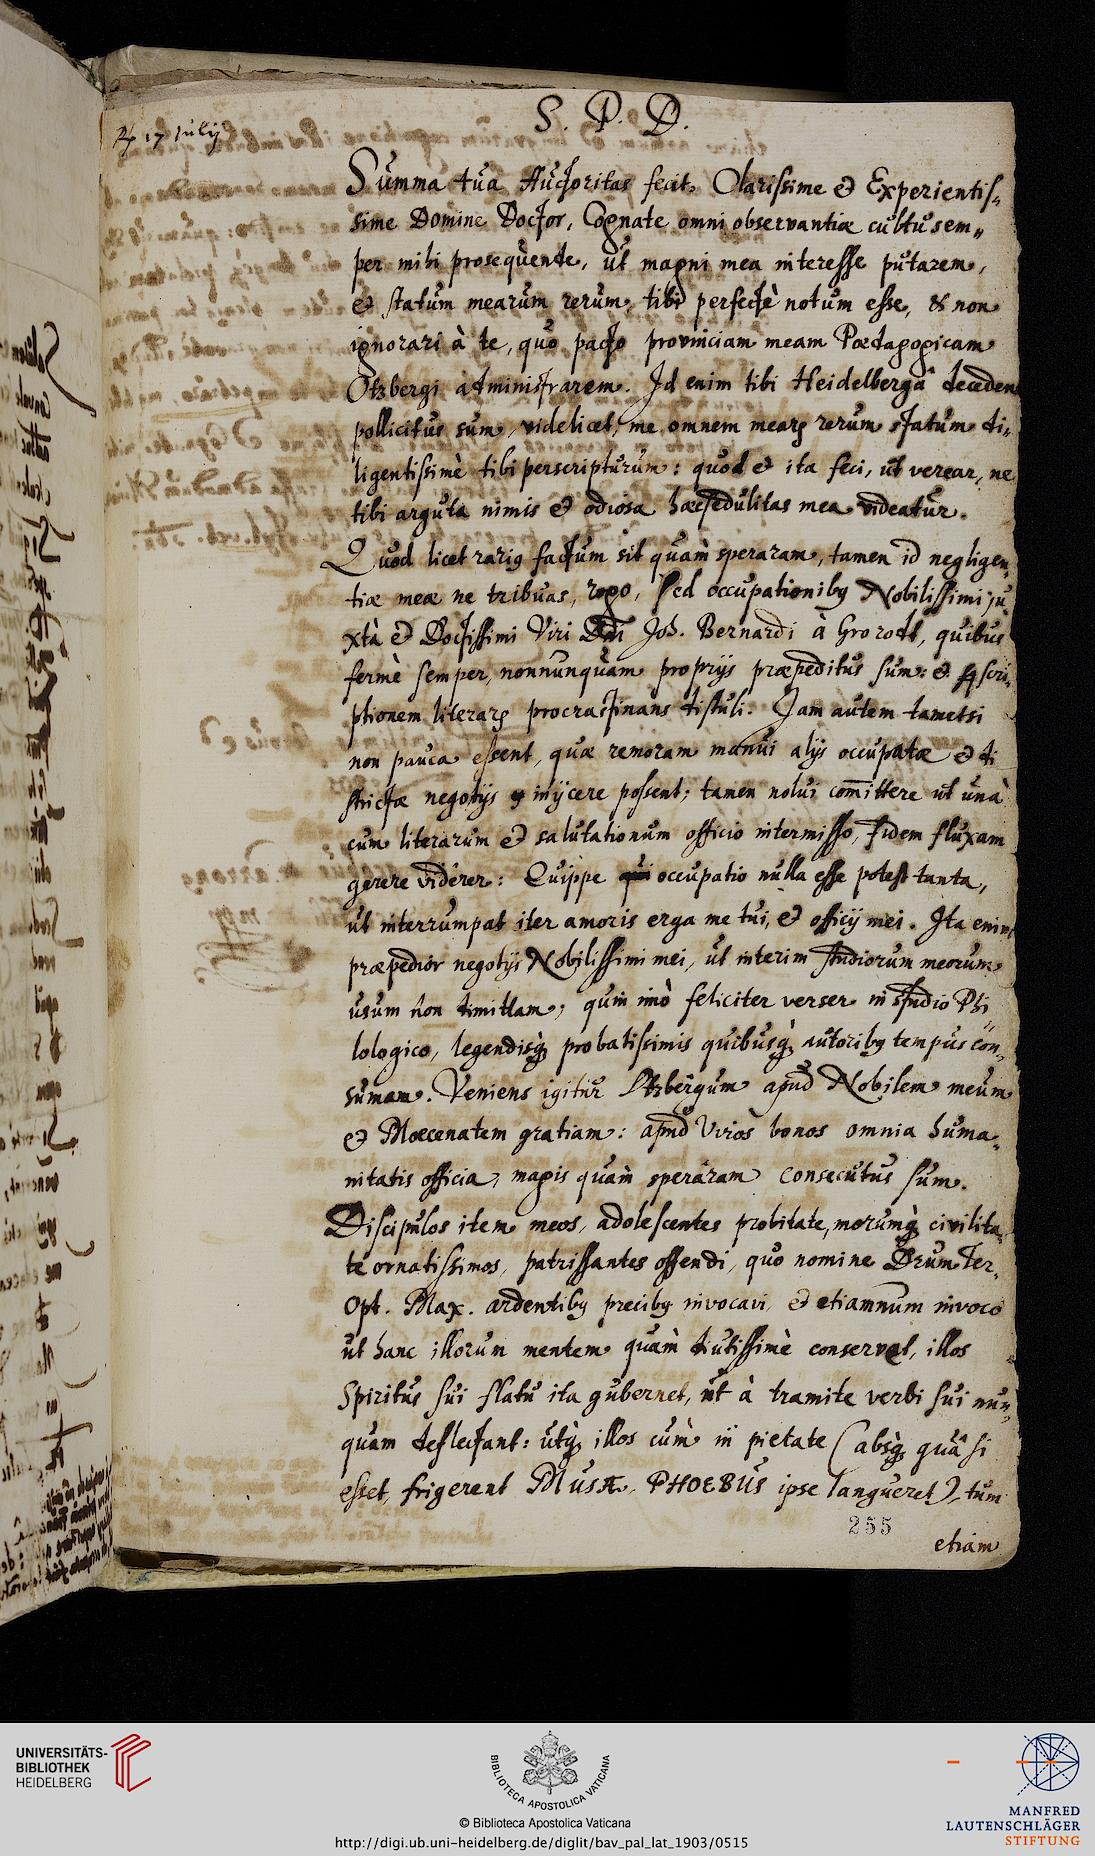 S. P. D.
Rp 17 Julij
Summa tua Auctoritas fecit, Clarissime & Experientis„
sime Domine Doctor, Cognate omni observantiæ cultu sem„
per mihi prosequende, ut magni mea interesse putarem,
& statum mearum rerum, tibi perfectè notum esse, & non
ignorari à te, quo pacto provinciam meam Pædagogicam
Otzbergi administrarem. Id enim tibi Heidelbergâ decedens
pollicitus sum, videlicet, me omnem mearꝝ rerum statum di„
ligentissimè tibi perscripturum: quod & ita feci, ut verear, ne
tibi arguta nimis & odiosa hæc sedulitas mea videatur.
Quod licet rariꝰ factum sit quàm speraram, tamen id negligen„
tiæ meæ ne tribuas, rogo, sed occupationibꝰ Nobilissimi ju„
xtà & Doctissimi Viri Dni Joh. Bernardi à , quibus
fermè semper, nonnunquàm proprijs præpeditus sum: & scri„
ptionem literarꝝ procrastinans distuli. Jam autem tametsi
non pauca essent, quæ remoram manui alijs occupatæ & di
strictæ negotijs injicere possent; tamen nolui com̄ittere ut unà
cum literarum & salutationum officio intermisso, fidem fluxam
gerere viderer: Quippe occupatio nulla esse potest tanta,
ut interrumpat iter amoris erga me tui, & officij mei. Ita enim
præpedior negotijs Nobilissimi mei, ut interim studiorum meorum
usum non dimittam; quin imò feliciter verser in studio Phi„
lologico, legendisq́ꝫ probatissimis quibusq́ꝫ autoribꝰ tempus con„
sumam. Veniens igitur Otzbergum apud Nobilem meum
& Mœcenatem gratiam: apud Viros bonos omnia huma„
nitatis officia, magis quàm speraram consecutus sum.
Discipulos item meos, adolescentes probitate, morumq́ꝫ civilita„
te ornatissimos, patrissantes offendi, quo nomine Deum Ter„
Opt. Max. ardentibꝰ precibꝰ invocavi, & etiamnum invoco
ut hanc illorum mentem quàm diutissimè conservet, illos
Spiritus sui flatu ita gubernet, ut à tramite verbi sui nun„
quam deflectant: utq́ꝫ illos cùm in pietate (absq́ꝫ quâ si
esset, frigerent MUSÆ, PHOEBUS ipse langueret), tum
255
etiam
UNIVERSITÄTS-
BIBLIOTHEK
HEIDELBERG
BIBLIOTECA APOSTOLICA VATICANA
© Biblioteca Apostolica Vaticana
http://digi.ub.uni-heidelberg.de/diglit/bav_pal_lat_1903/0515
MANFRED
LAUTENSCHLÄGER
STIFTUNG